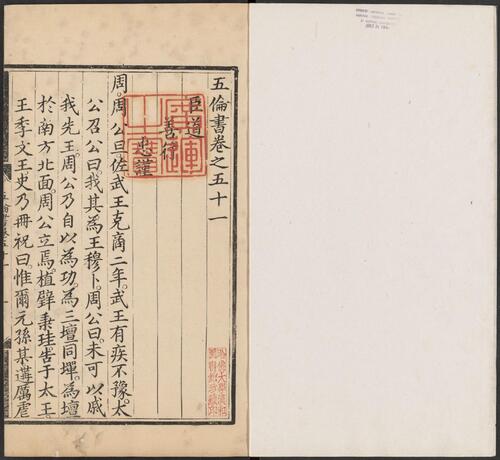 五倫書卷之五十一
臣道
善行
忠謹
周。周公旦佐武王克商二年。武王有疾不豫。太
公召公曰。我其為王穆卜。周公曰。未可以戚
我先王。周公乃自以為功。為三壇同墠。為壇
於南方北面。周公立焉。植璧秉珪。告于太王
王季文王。史乃冊祝曰。惟爾元孫某遘厲虐